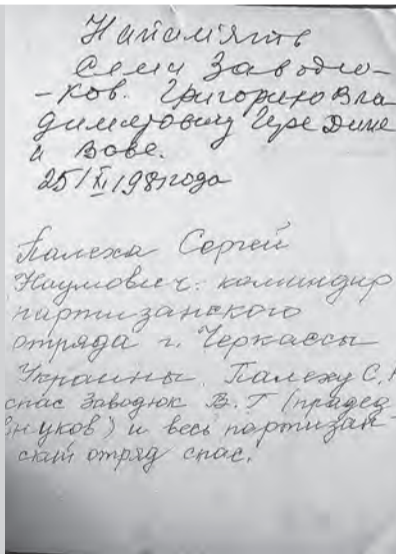 На память
семи Заводю-
-ков. Григорию Вла
димировичу Гере Дине
и Вове.
25/XI 1981года
Палеха Сергей
Наумович. командир
партизанского
отряда г. Черкассы
Украины. Палеху С.Н
спас Заводюк В.Г (прадед
внуков) и весь партизан-
ский отряд спас.